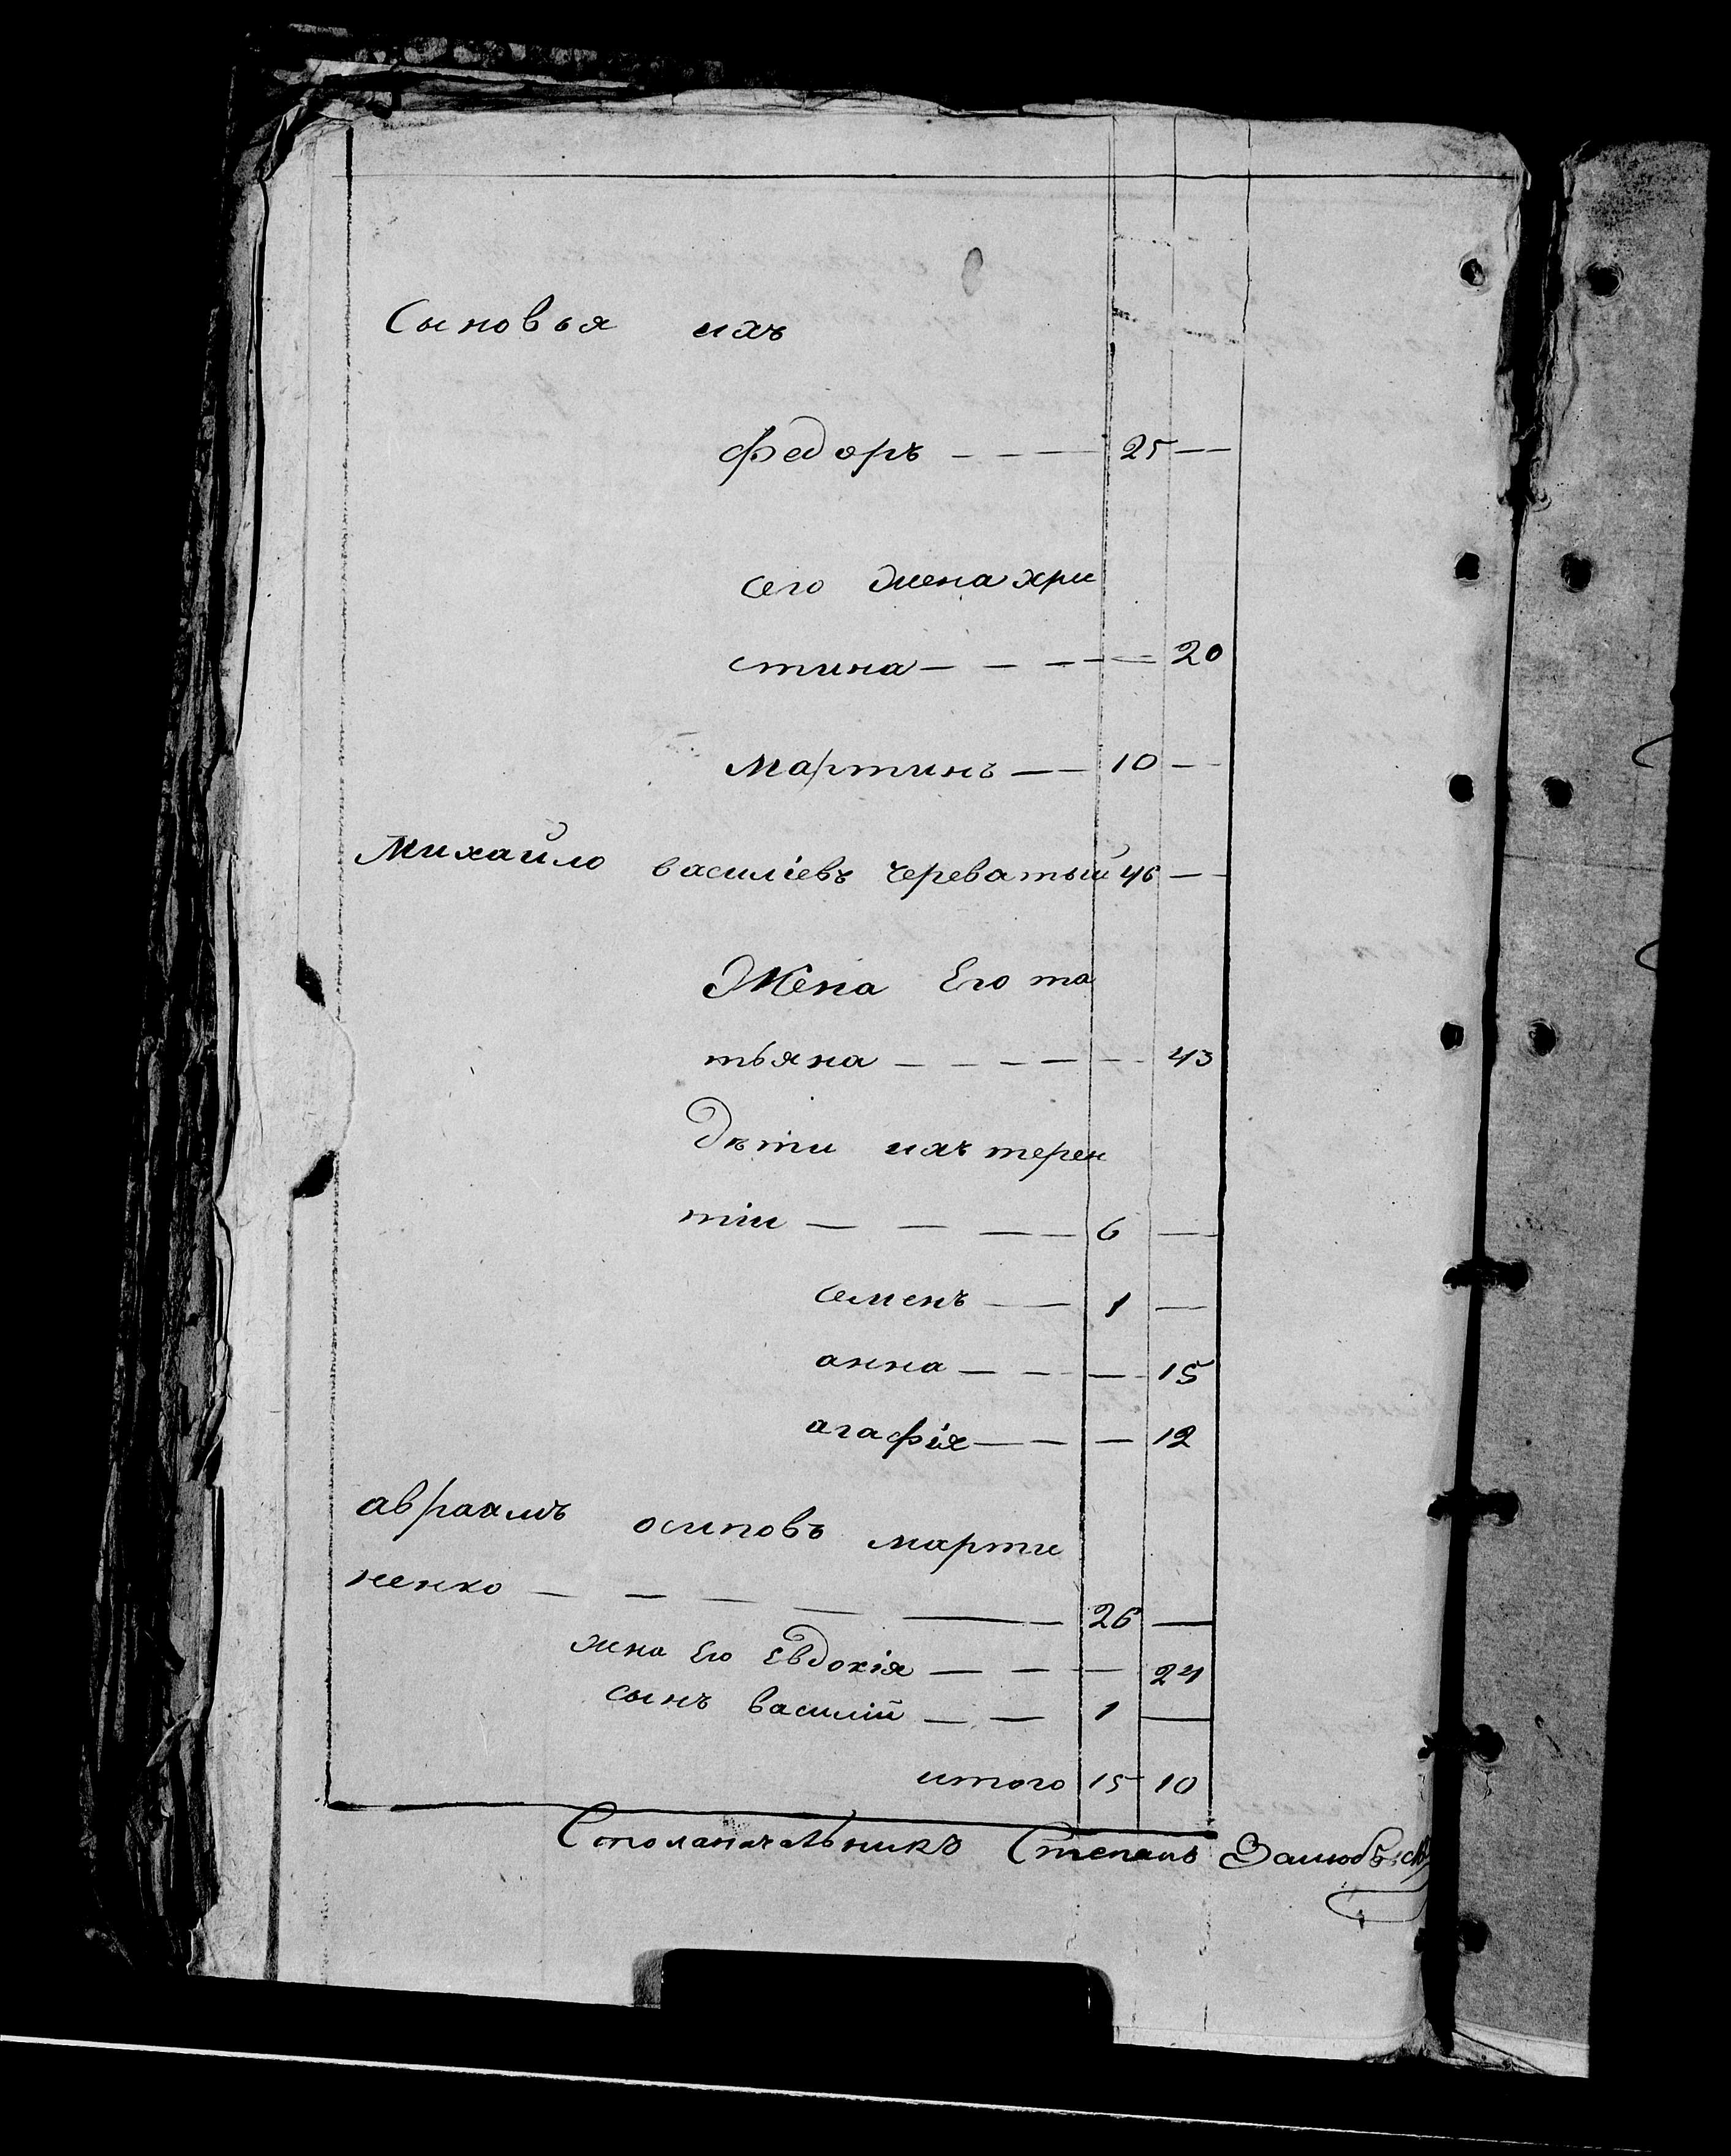 Сыновья ихъ
Федоръ — — — 25 —
сего жена хри
стина — — — — 20
Мартинъ — — 10 —
Михайло василіевъ Череватый 46 —
Жена Его та
тьяна — — — — — 43
Дѣти ихъ терен
тіи — — — — 6 —
семенъ — — 1 —
анна — — — — 15
агафія — — — 12
авраамъ осиповъ марти
ненко — — — — — 26 —
жена Его Евдокія — — — 24
сынъ василій — — 1 —
итого 15 10
Столаначальникъ Степанъ